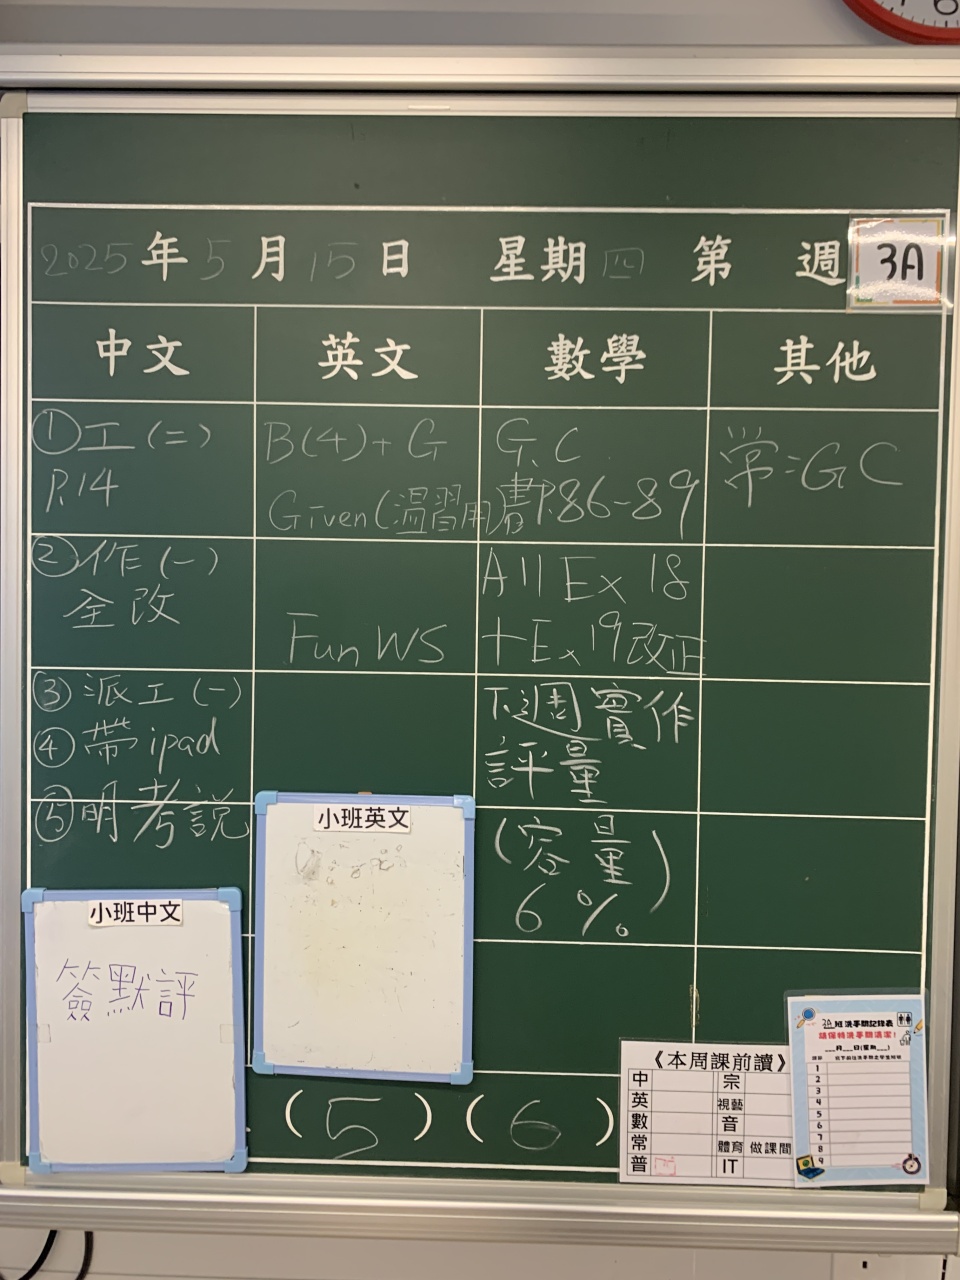 2025年5月15日 星期四 第 週 3A
中文 英文 數學 其他
①工(二)
P.14
②作(一)
全改
③派工(一)
④帶ipad
⑤明考說
B(4)+G
Given(溫習用)
Fun WS
G.C
書P.86-89
All Ex 18
+Ex 19改正
下週實作
評量
(容量)
6%
常:GC
小班英文
小班中文
簽默評
(5)(6)
《本周課前讀》
中 宗
英 視藝
數 音
常 體育 做課間
普 IT
3A班洗手間記錄表
請保持洗手間清潔!
__月__日(星期__)
1
2
3
4
5
6
7
8
9